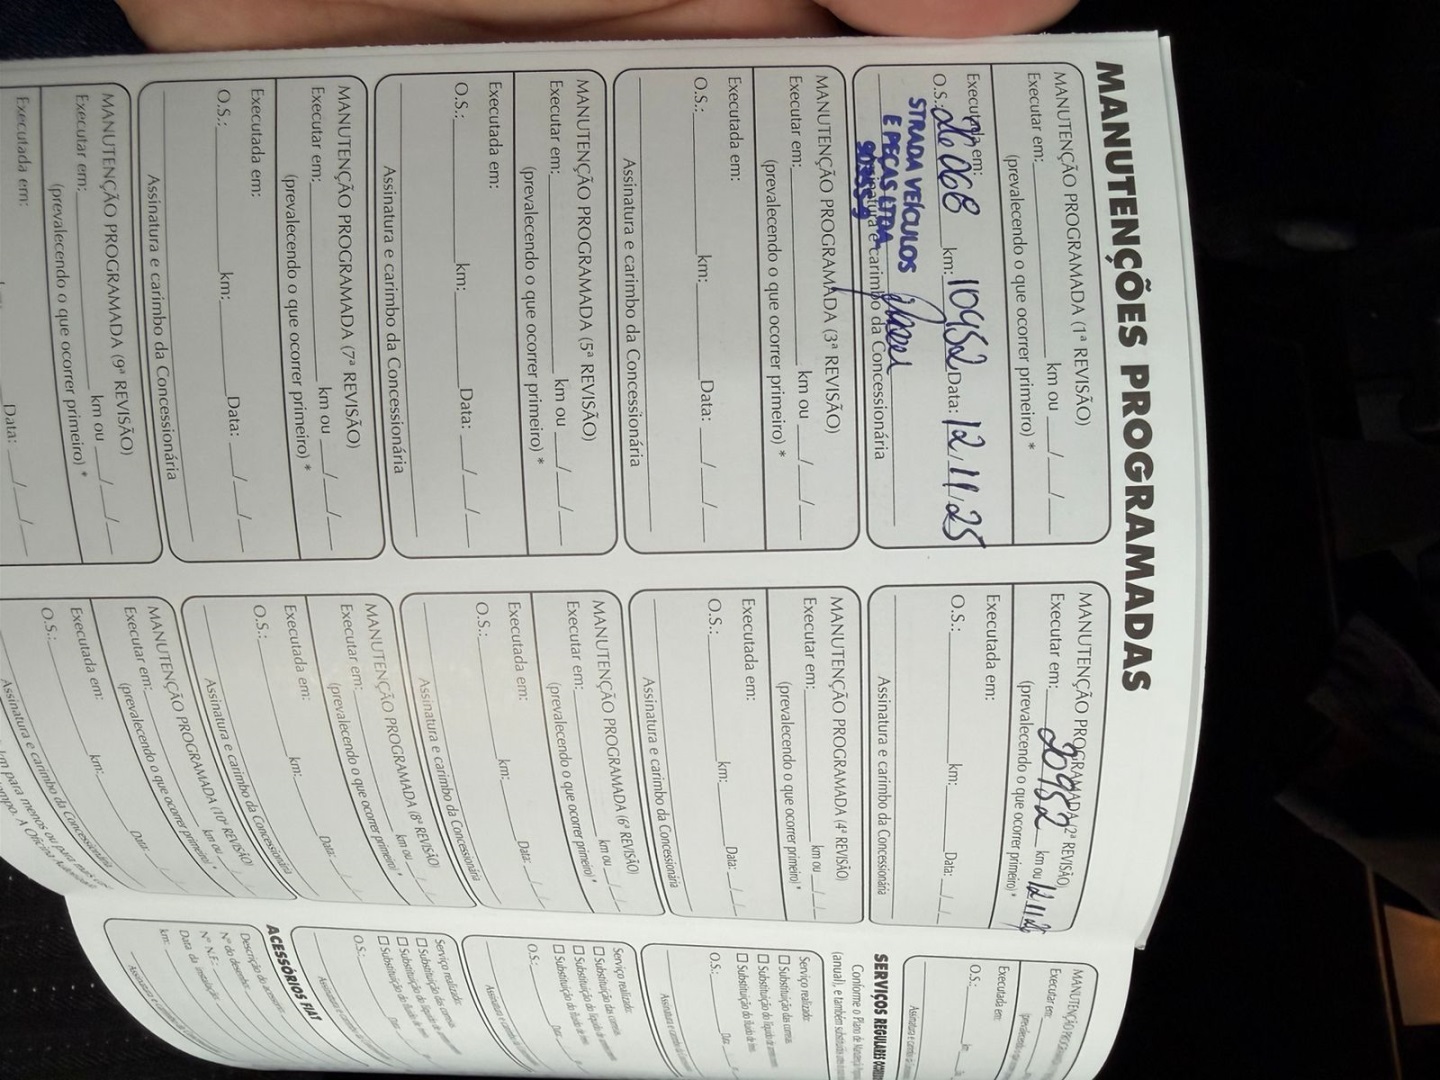 MANUTENÇÕES PROGRAMADAS
MANUTENÇÃO PROGRAMADA (1ª REVISÃO)
Executar em:__________ km ou ___/___/___
(prevalecendo o que ocorrer primeiro) *
Executada em:
O.S.: 26068 km: 10952 Data: 12.11.25
STRADA VEÍCULOS
E PEÇAS LTDA
Assinatura e carimbo da Concessionária
MANUTENÇÃO PROGRAMADA (2ª REVISÃO)
Executar em: 20952 km ou 12/11/26
(prevalecendo o que ocorrer primeiro) *
Executada em:
O.S.:__________ km:__________ Data: __/__/__
Assinatura e carimbo da Concessionária
MANUTENÇÃO PROGRAMADA (3ª REVISÃO)
Executar em:__________ km ou ___/___/___
(prevalecendo o que ocorrer primeiro) *
Executada em:
O.S.:__________ km:__________ Data: ___/___/___
Assinatura e carimbo da Concessionária
MANUTENÇÃO PROGRAMADA (4ª REVISÃO)
Executar em:__________ km ou ___/___/___
(prevalecendo o que ocorrer primeiro) *
Executada em:
O.S.:__________ km:__________ Data: __/__/__
Assinatura e carimbo da Concessionária
MANUTENÇÃO PROGRAMADA (5ª REVISÃO)
Executar em:__________ km ou ___/___/___
(prevalecendo o que ocorrer primeiro) *
Executada em:
O.S.:__________ km:__________ Data: ___/___/___
Assinatura e carimbo da Concessionária
MANUTENÇÃO PROGRAMADA (6ª REVISÃO)
Executar em:__________ km ou ___/___/___
(prevalecendo o que ocorrer primeiro) *
Executada em:
O.S.:__________ km:__________ Data: __/__/__
Assinatura e carimbo da Concessionária
MANUTENÇÃO PROGRAMADA (7ª REVISÃO)
Executar em:__________ km ou ___/___/___
(prevalecendo o que ocorrer primeiro) *
Executada em:
O.S.:__________ km:__________ Data: ___/___/___
Assinatura e carimbo da Concessionária
MANUTENÇÃO PROGRAMADA (8ª REVISÃO)
Executar em:__________ km ou ___/___/___
(prevalecendo o que ocorrer primeiro) *
Executada em:
O.S.:__________ km:__________ Data: __/__/__
Assinatura e carimbo da Concessionária
MANUTENÇÃO PROGRAMADA (9ª REVISÃO)
Executar em:__________ km ou ___/___/___
(prevalecendo o que ocorrer primeiro) *
Executada em:
Data: ___/___/___
MANUTENÇÃO PROGRAMADA (10ª REVISÃO)
Executar em:__________ km ou
(prevalecendo o que ocorrer primeiro) *
Executada em:
O.S.:__________ km:__________ Data:
Assinatura e carimbo da Concessionária
km para menos ou para mais
A Oficina
MANUTENÇÃO
Executar em:
Executada em:
O.S.:
SERVIÇOS REGULARES
Conforme o Plano de Manutenção
(anual), e também
Serviço realizado:
☐ Substituição das correias
☐ Substituição do líquido de
☐ Substituição do fluido de
O.S.:
Serviço realizado:
☐ Substituição das correias
☐ Substituição do líquido de
☐ Substituição do fluido de
O.S.:
Serviço realizado:
☐ Substituição das correias
☐ Substituição do líquido de
☐ Substituição do fluido de
O.S.:
ACESSÓRIOS FIAT
Descrição do acessório:
Nº do desenho:
Nº N.F.:
Data da instalação:
km: